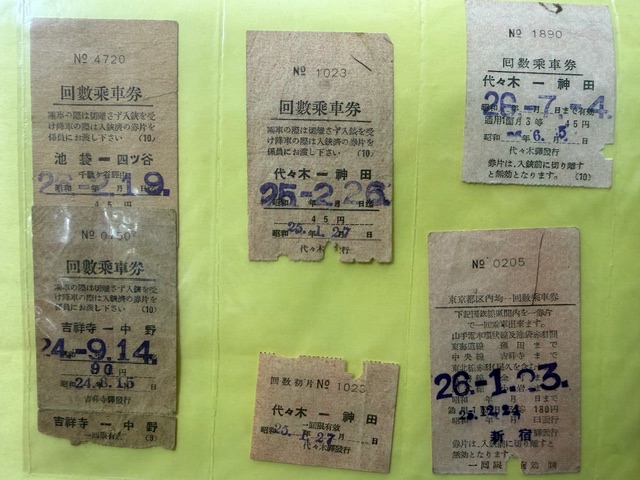 No 4720
回數乗車券
乘車の際は切離さず入鋏を受
け降車の際は入鋏済の券片を
係員にお渡し下さい (10)
池袋ー四ツ谷
26-2.19.
45円
No 0150
回數乗車券
乘車の際は切離さず入鋏を受
け降車の際は入鋏済の券片を
係員にお渡し下さい
(10)
吉祥寺ー中野
24-9.14.
90円
昭和24.8.15日
吉祥寺驛發行
吉祥寺ー中野
No 1023
回數乗車券
乘車の際は切離さず入鋏を受
け降車の際は入鋏済の券片を
係員にお渡し下さい (10)
代々木ー神田
25-2.26.
45円
昭和25.1.27日
代々木
行
回数初片 No 1023
代々木ー神田
一回限有效
昭和25.1.27日
代々木驛發行
No 1890
回數乗車券
代々木ー神田
26-7.-4.
通用1箇月3等 45円
昭和 6.5
代々木驛發行
券片は、入鋏前に切り離す
と無効となります。 (10)
No 0205
東京都区内均一回數乗車券
下記国鉄線区間内を一券片
で一回乗車出来ます。
中央線 吉祥寺まで
26-1.23.
180円
新宿
券片は、入鋏前に切り離す
と無効となります。